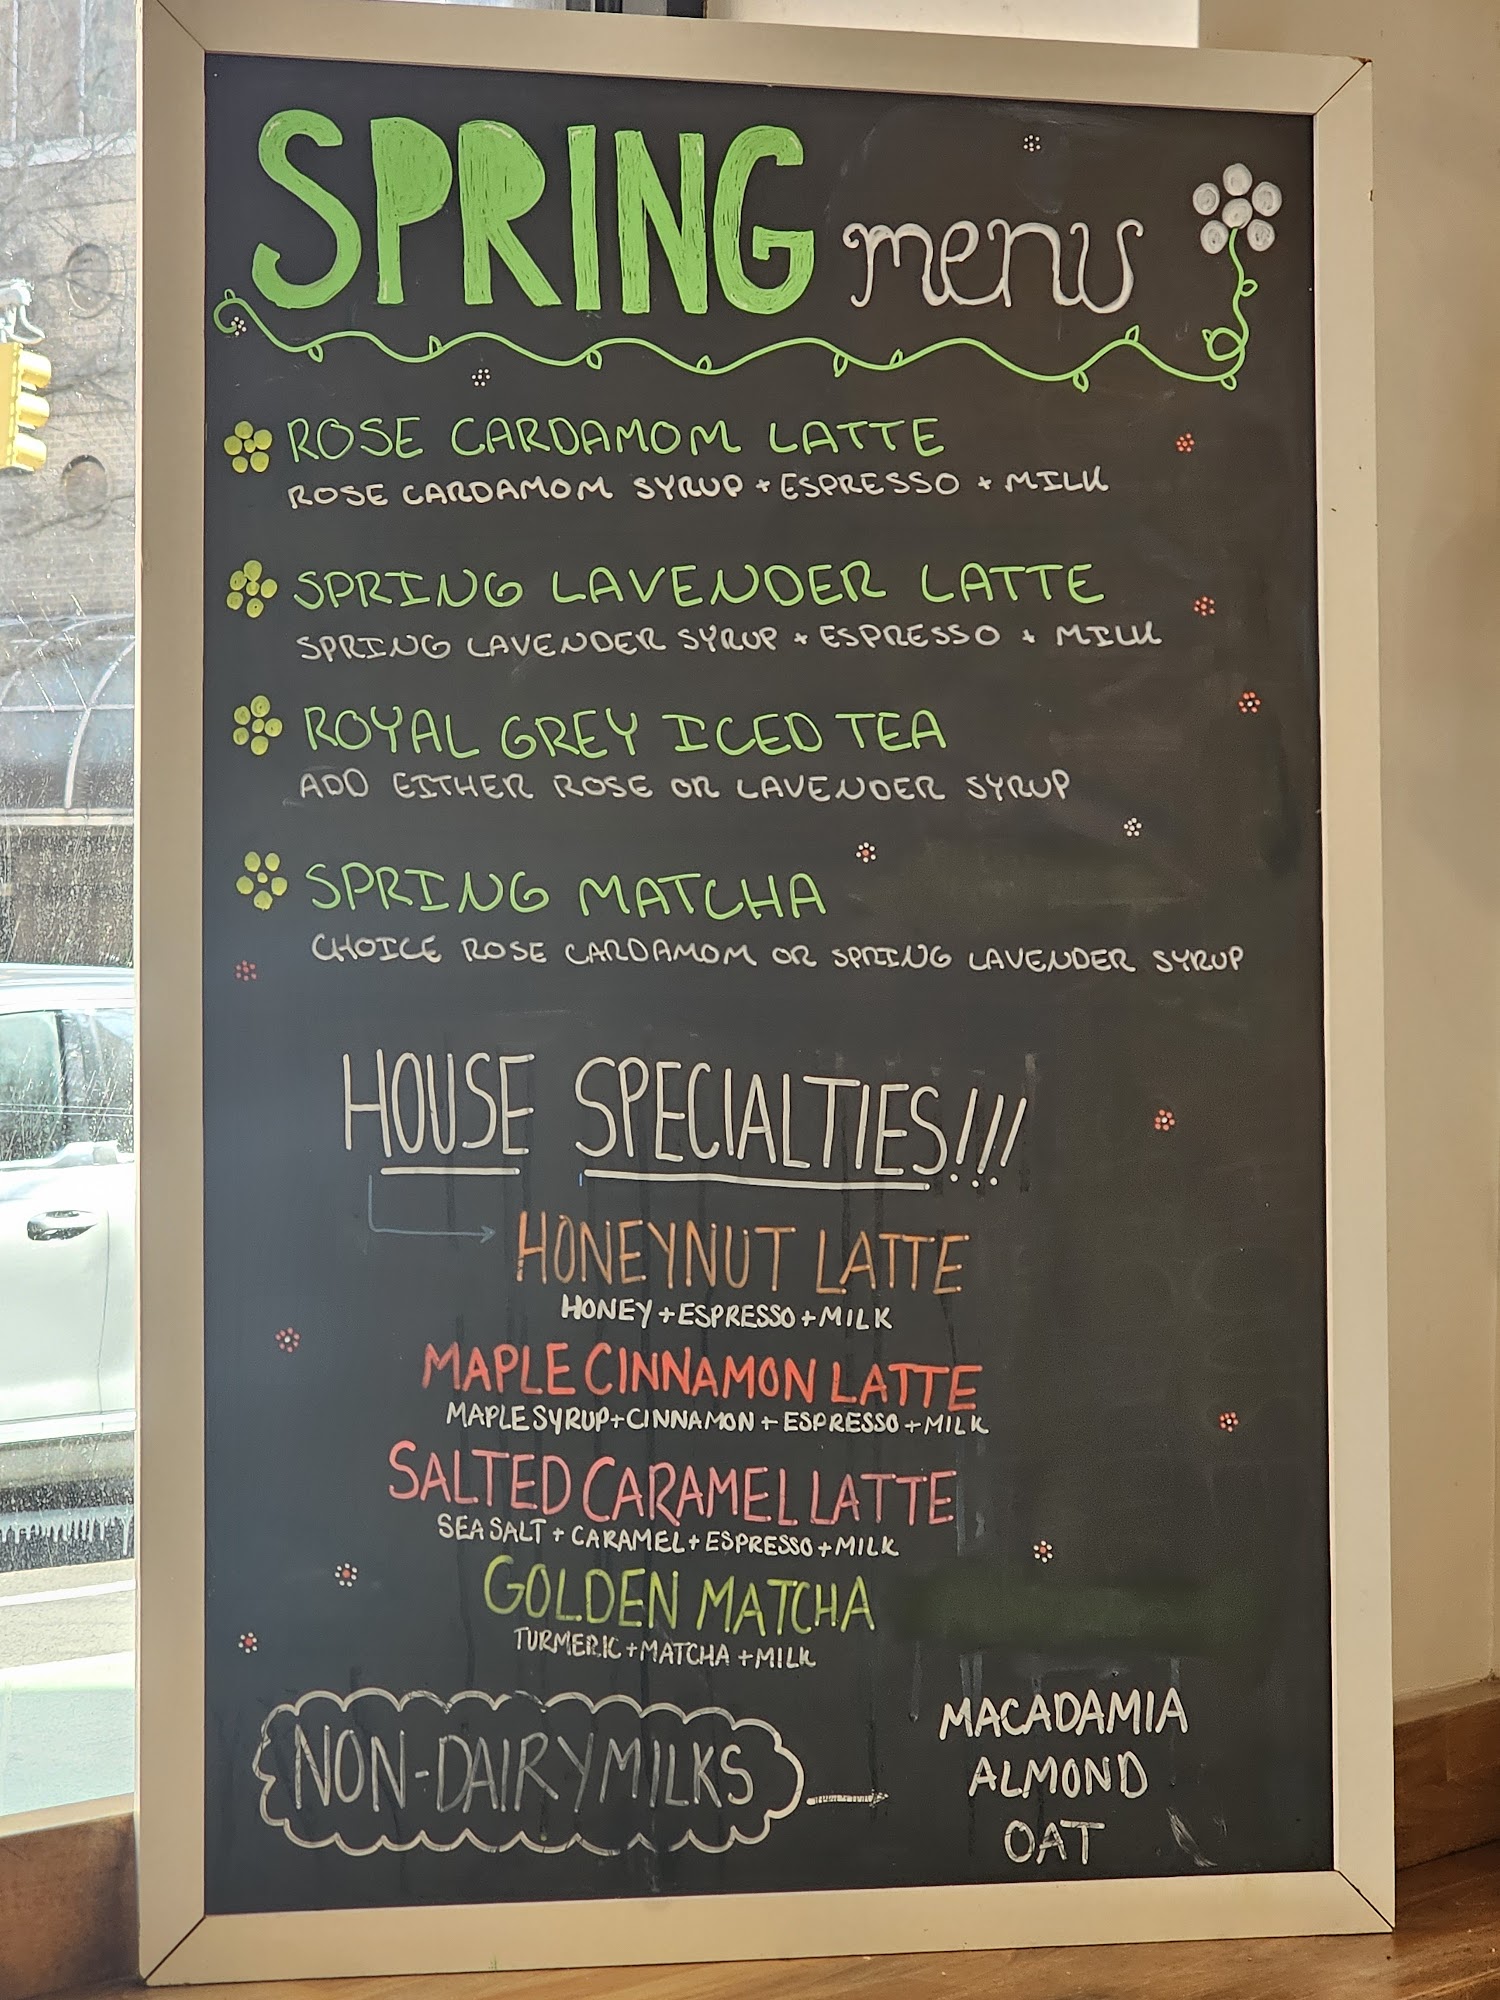 SPRING menu
ROSE CARDAMOM LATTE
ROSE CARDAMOM SYRUP + ESPRESSO + MILK
SPRING LAVENDER LATTE
SPRING LAVENDER SYRUP + ESPRESSO + MILK
ROYAL GREY ICED TEA
ADD EITHER ROSE OR LAVENDER SYRUP
SPRING MATCHA
CHOICE ROSE CARDAMOM OR SPRING LAVENDER SYRUP
HOUSE SPECIALTIES!!!
HONEYNUT LATTE
HONEY + ESPRESSO + MILK
MAPLE CINNAMON LATTE
MAPLE SYRUP + CINNAMON + ESPRESSO + MILK
SALTED CARAMEL LATTE
SEA SALT + CARAMEL + ESPRESSO + MILK
GOLDEN MATCHA
TURMERIC + MATCHA + MILK
NON-DAIRY MILKS
MACADAMIA
ALMOND
OAT